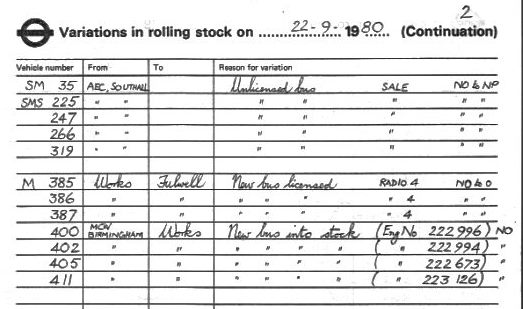 2
Variations in rolling stock on 22-9- 1980. (Continuation)
Vehicle number From To Reason for variation
SM 35 AEC, SOUTHALL Unlicensed bus SALE NO to NP
SMS 225 " " " " " " "
247 " " " " " " "
266 " " " " " " "
319 " " " " " " "
M 385 Works Fulwell New bus licensed RADIO 4 NO to O
386 " " " " " " 4 " "
387 " " " " " " 4 " "
400 MCW BIRMINGHAM Works New bus into stock (Eng No 222996) NO
402 " " " " " " ( " 222994) "
405 " " " " " " ( " 222673) "
411 " " " " " " ( " 223126) "